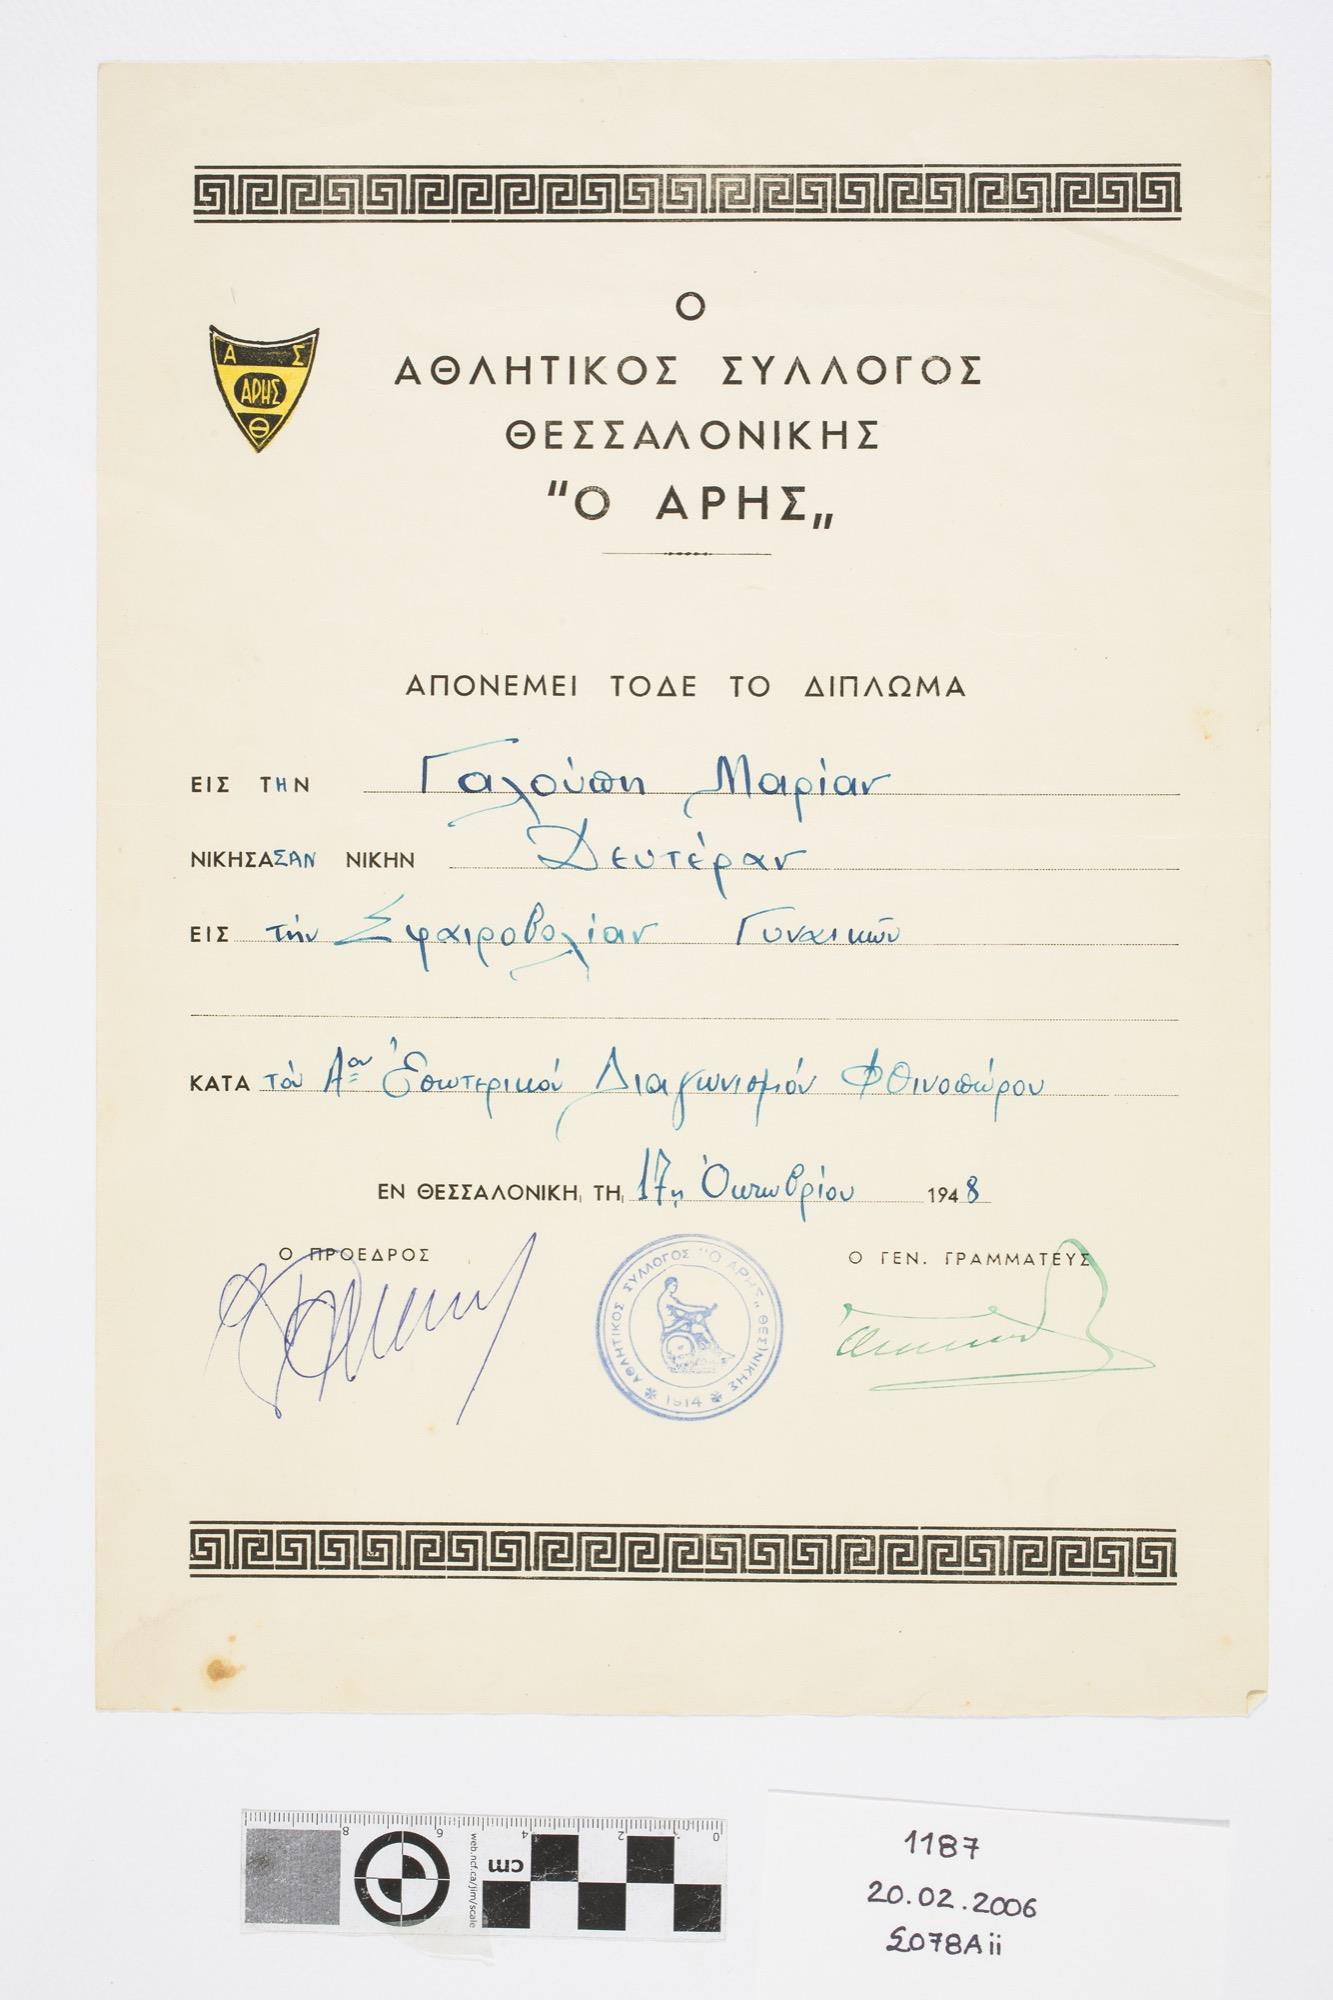 Ο
ΑΘΛΗΤΙΚΟΣ ΣΥΛΛΟΓΟΣ
ΘΕΣΣΑΛΟΝΙΚΗΣ
"Ο ΑΡΗΣ„
Α Σ
ΑΡΗΣ
Θ
ΑΠΟΝΕΜΕΙ ΤΟΔΕ ΤΟ ΔΙΠΛΩΜΑ
ΕΙΣ ΤΗΝ Γαλούπη Μαρίαν
ΝΙΚΗΣΑΣΑΝ ΝΙΚΗΝ Δευτέραν
ΕΙΣ τήν Σφαιροβολίαν Γυναικῶν
ΚΑΤΑ τόν Αον Ἐσωτερικόν Διαγωνισμόν Φθινοπώρου
ΕΝ ΘΕΣΣΑΛΟΝΙΚΗ, ΤΗ, 17η Ὀκτωβρίου 1948
Ο ΠΡΟΕΔΡΟΣ
Ο ΓΕΝ. ΓΡΑΜΜΑΤΕΥΣ
ΑΘΛΗΤΙΚΟΣ ΣΥΛΛΟΓΟΣ "Ο ΑΡΗΣ„ ΘΕΣ)ΝΙΚΗΣ
1914
0 2 4 6 8
cm
web.ncf.ca/jim/scale
1187
20.02.2006
Σ078Aii